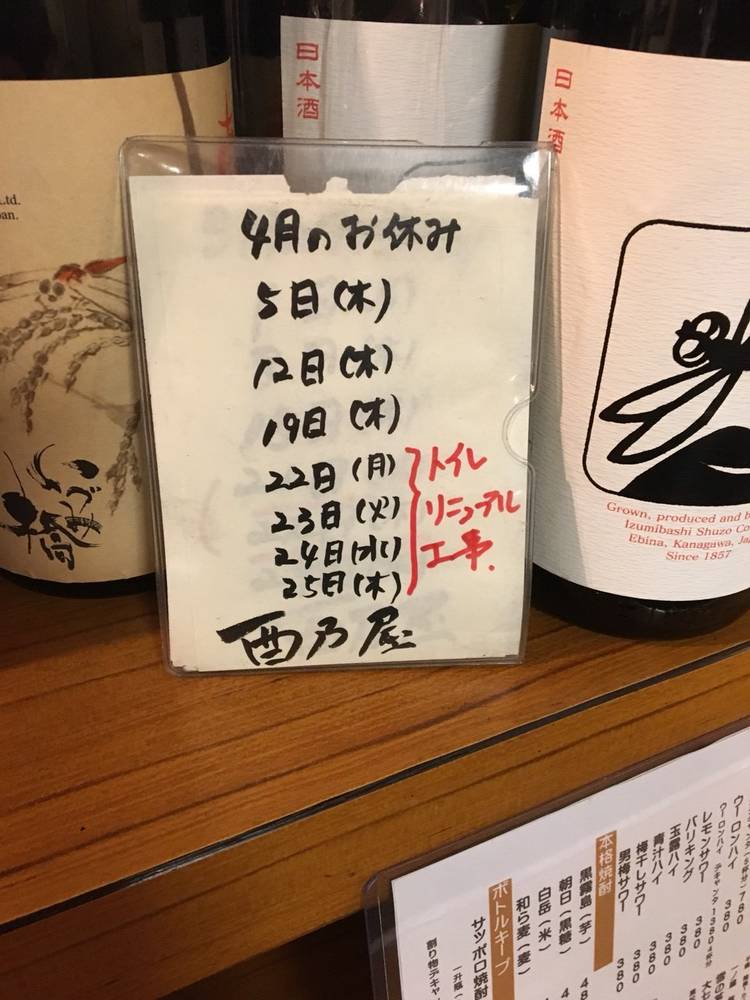 4月のお休み
5日(木)
12日(木)
19日(木)
22日(月)
23日(火)
24日(水)
25日(木)
トイレ
リニューアル
工事.
酉乃屋
日本酒
日本酒
Ltd.
Grown, produced and b
Izumibashi Shuzo Co
Ebina, Kanagawa, Ja
Since 1857
いづみ橋
ウーロンハイ 380
レモンサワー 380
バリキング 380
玉露ハイ 380
青汁ハイ 380
梅干しサワー 380
男梅サワー 380
本格焼酎
黒霧島(芋)
朝日(黒糖)
白岳(米)
和ら麦(麦)
ボトルキープ
サッポロ焼酎